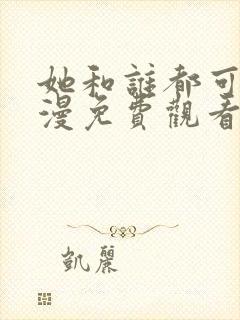 她和誰都可
漫免費觀看
凱麗